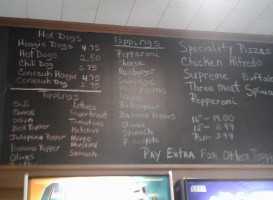 Hot Dogs
Hoagie Dogs 4.75
Hot Dogs 2.50
Chili Dog 2.75
Conecuh Hoagie 4.75
Conecuh Dog 2.75
Toppings
Chili
Cheese
Onions
Bell Pepper
Jalapeno Pepper
Banana Pepper
Olives
Lettuce
Sauerkraut
Tomatoes
Ketchup
Mayo
Mustard
Spinach
Toppings
Pepperoni
Cheese
Hamburger
Sausage
Mushrooms
Onion
Banana Peppers
Olives
Spinach
Pineapple
Specialty Pizzas
Chicken Alfredo
Supreme Buffalo
Three Meat Spinach
Pepperoni
16" - 14.00
Pay Extra For Other Toppings